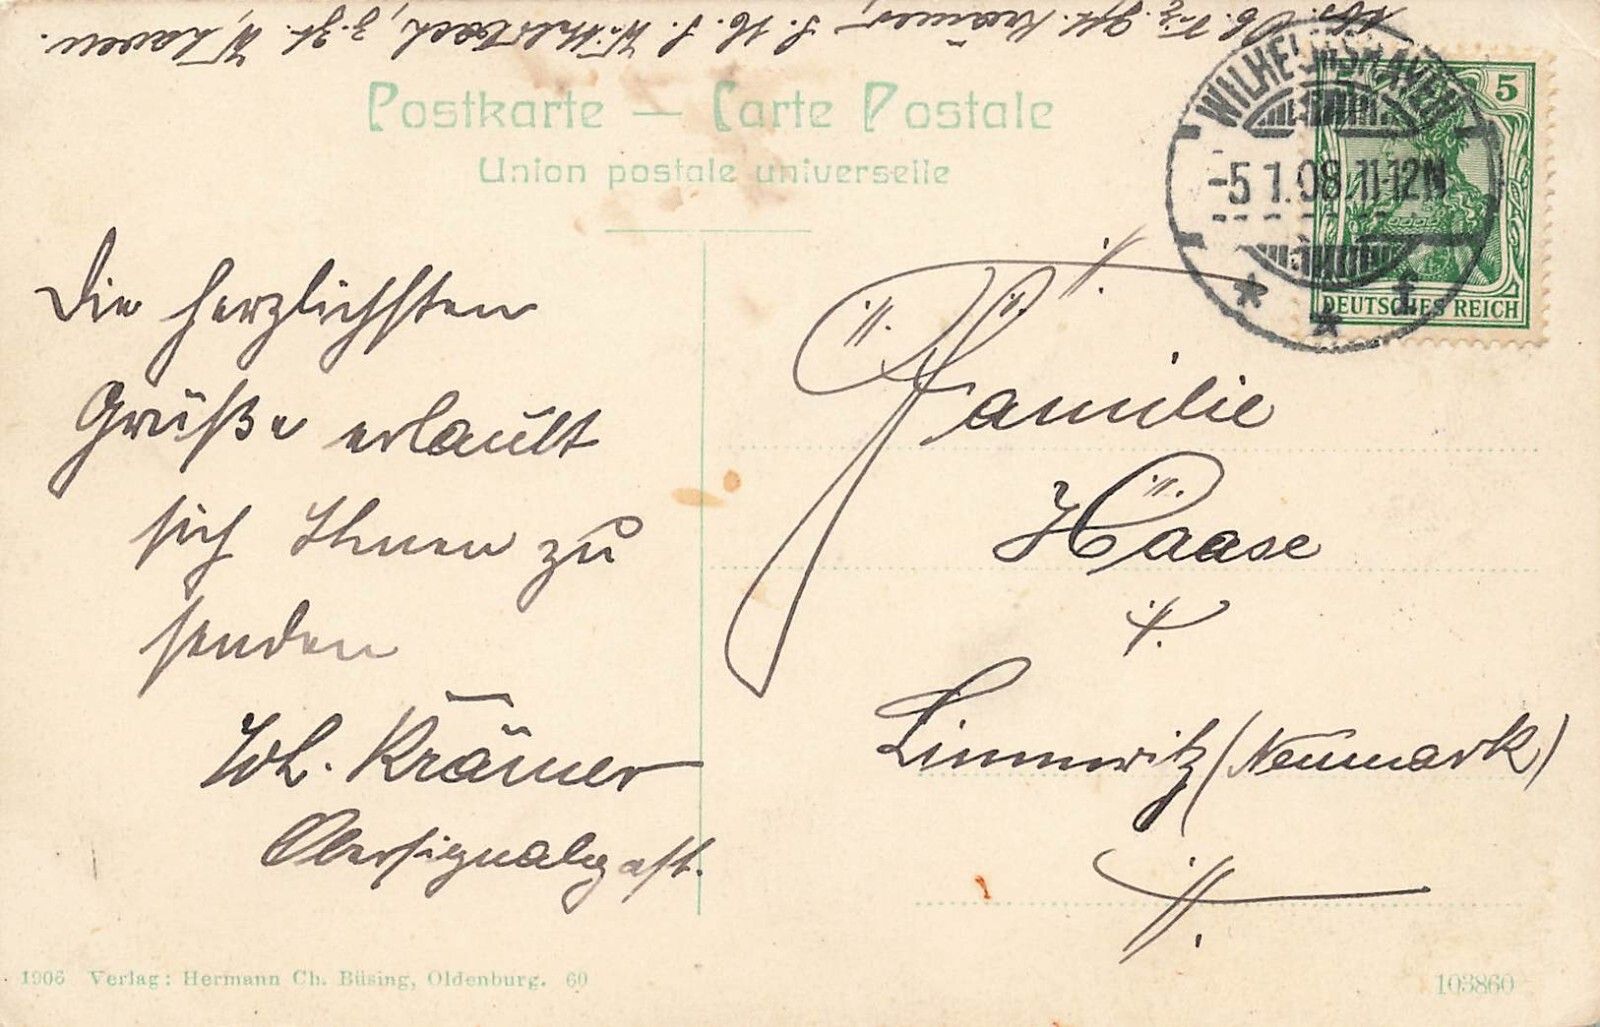 Abs. Ob. Sig. Gst. Krämer, S. M. S. Wittelsbach, z. Zt. W'haven.
Postkarte — Carte Postale
Union postale universelle
WILHELMSHAVEN
-5 1.08.11-12N
* * f
5
DEUTSCHES REICH
Die herzlichsten
Grüße erlaubt
sich Ihnen zu
senden
Wh. Krämer
Obersignalgast.
Familie
Haase
Limmritz (Neumark)
1906 Verlag: Hermann Ch. Büsing, Oldenburg. 60
103860